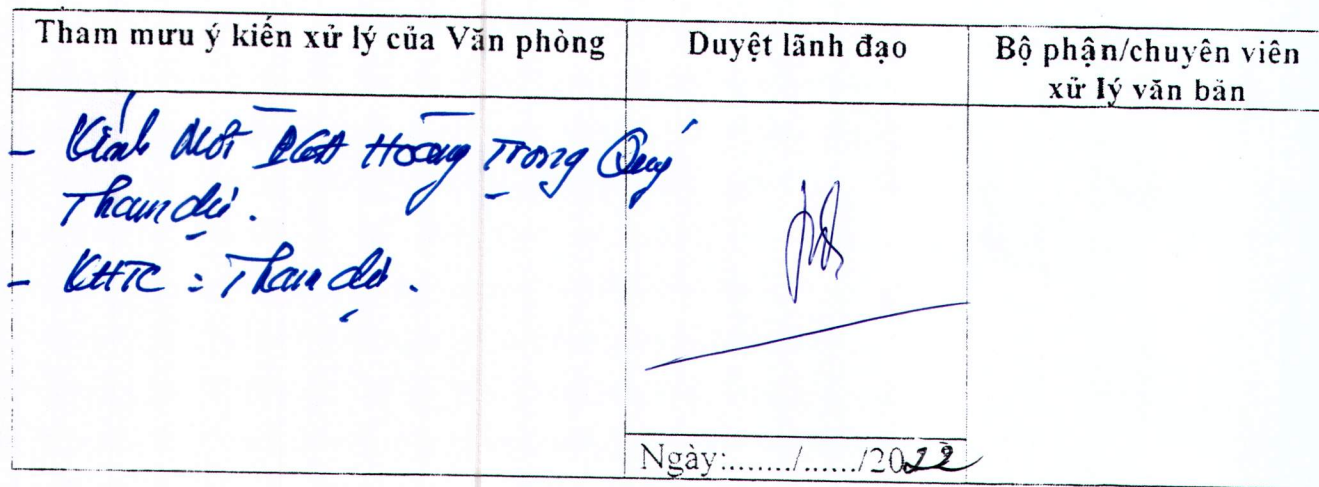 Tham mưu ý kiến xử lý của Văn phòng
Duyệt lãnh đạo
Bộ phận/chuyên viên
xử lý văn bản
- Kính mời PGĐ Hoàng Trọng Quý
Tham dự.
- KHTC : Tham dự.
Ngày:......./....../2022